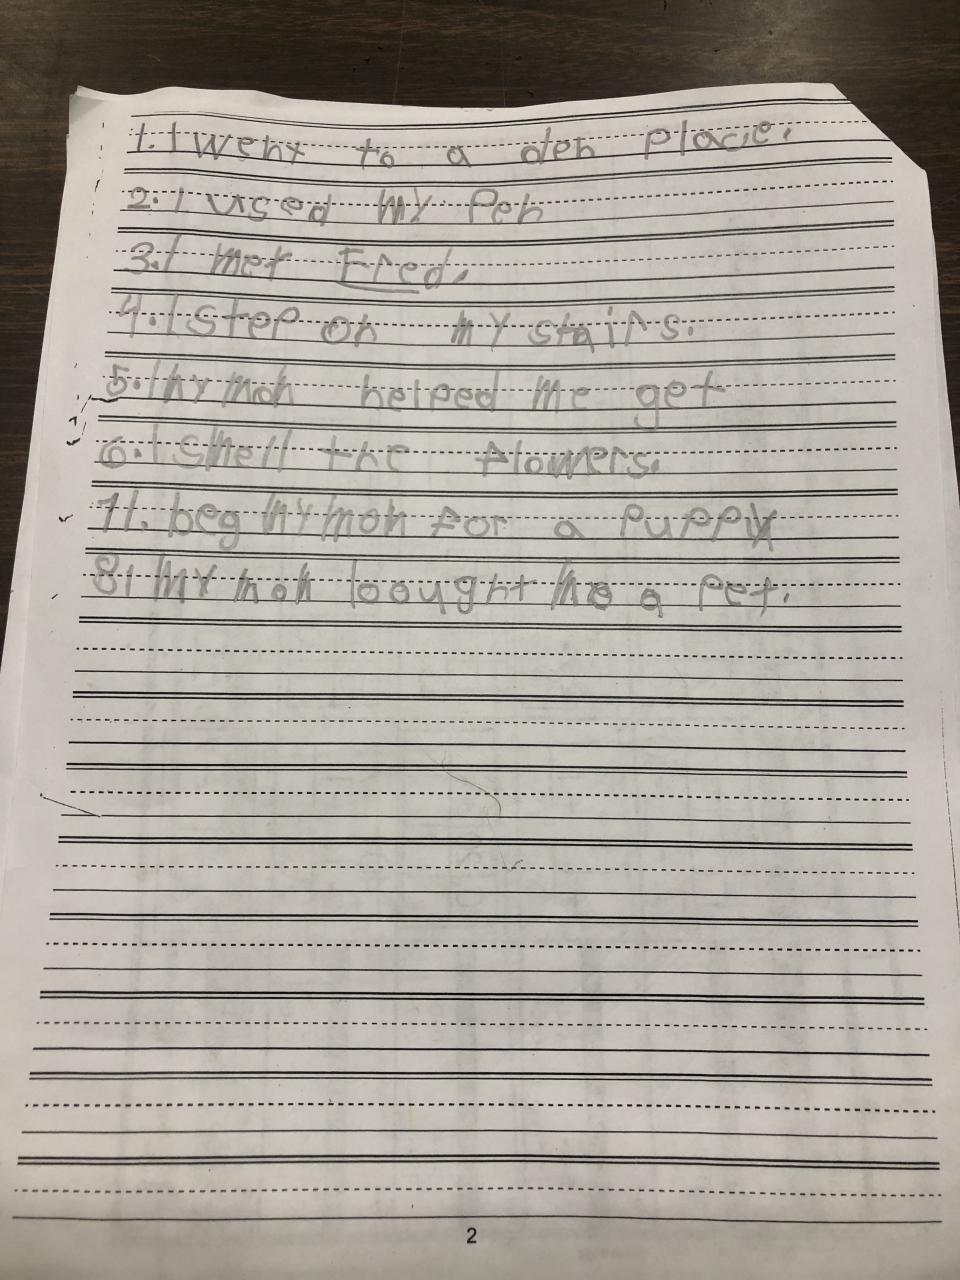 1. I went to a den place.
2. I used my pen
3. I met Fred.
4. I step on my stairs.
5. my mon helped me get
6. I smell the flowers.
7 I. beg my mon for a puppy
8. My mon bought me a pet.
2